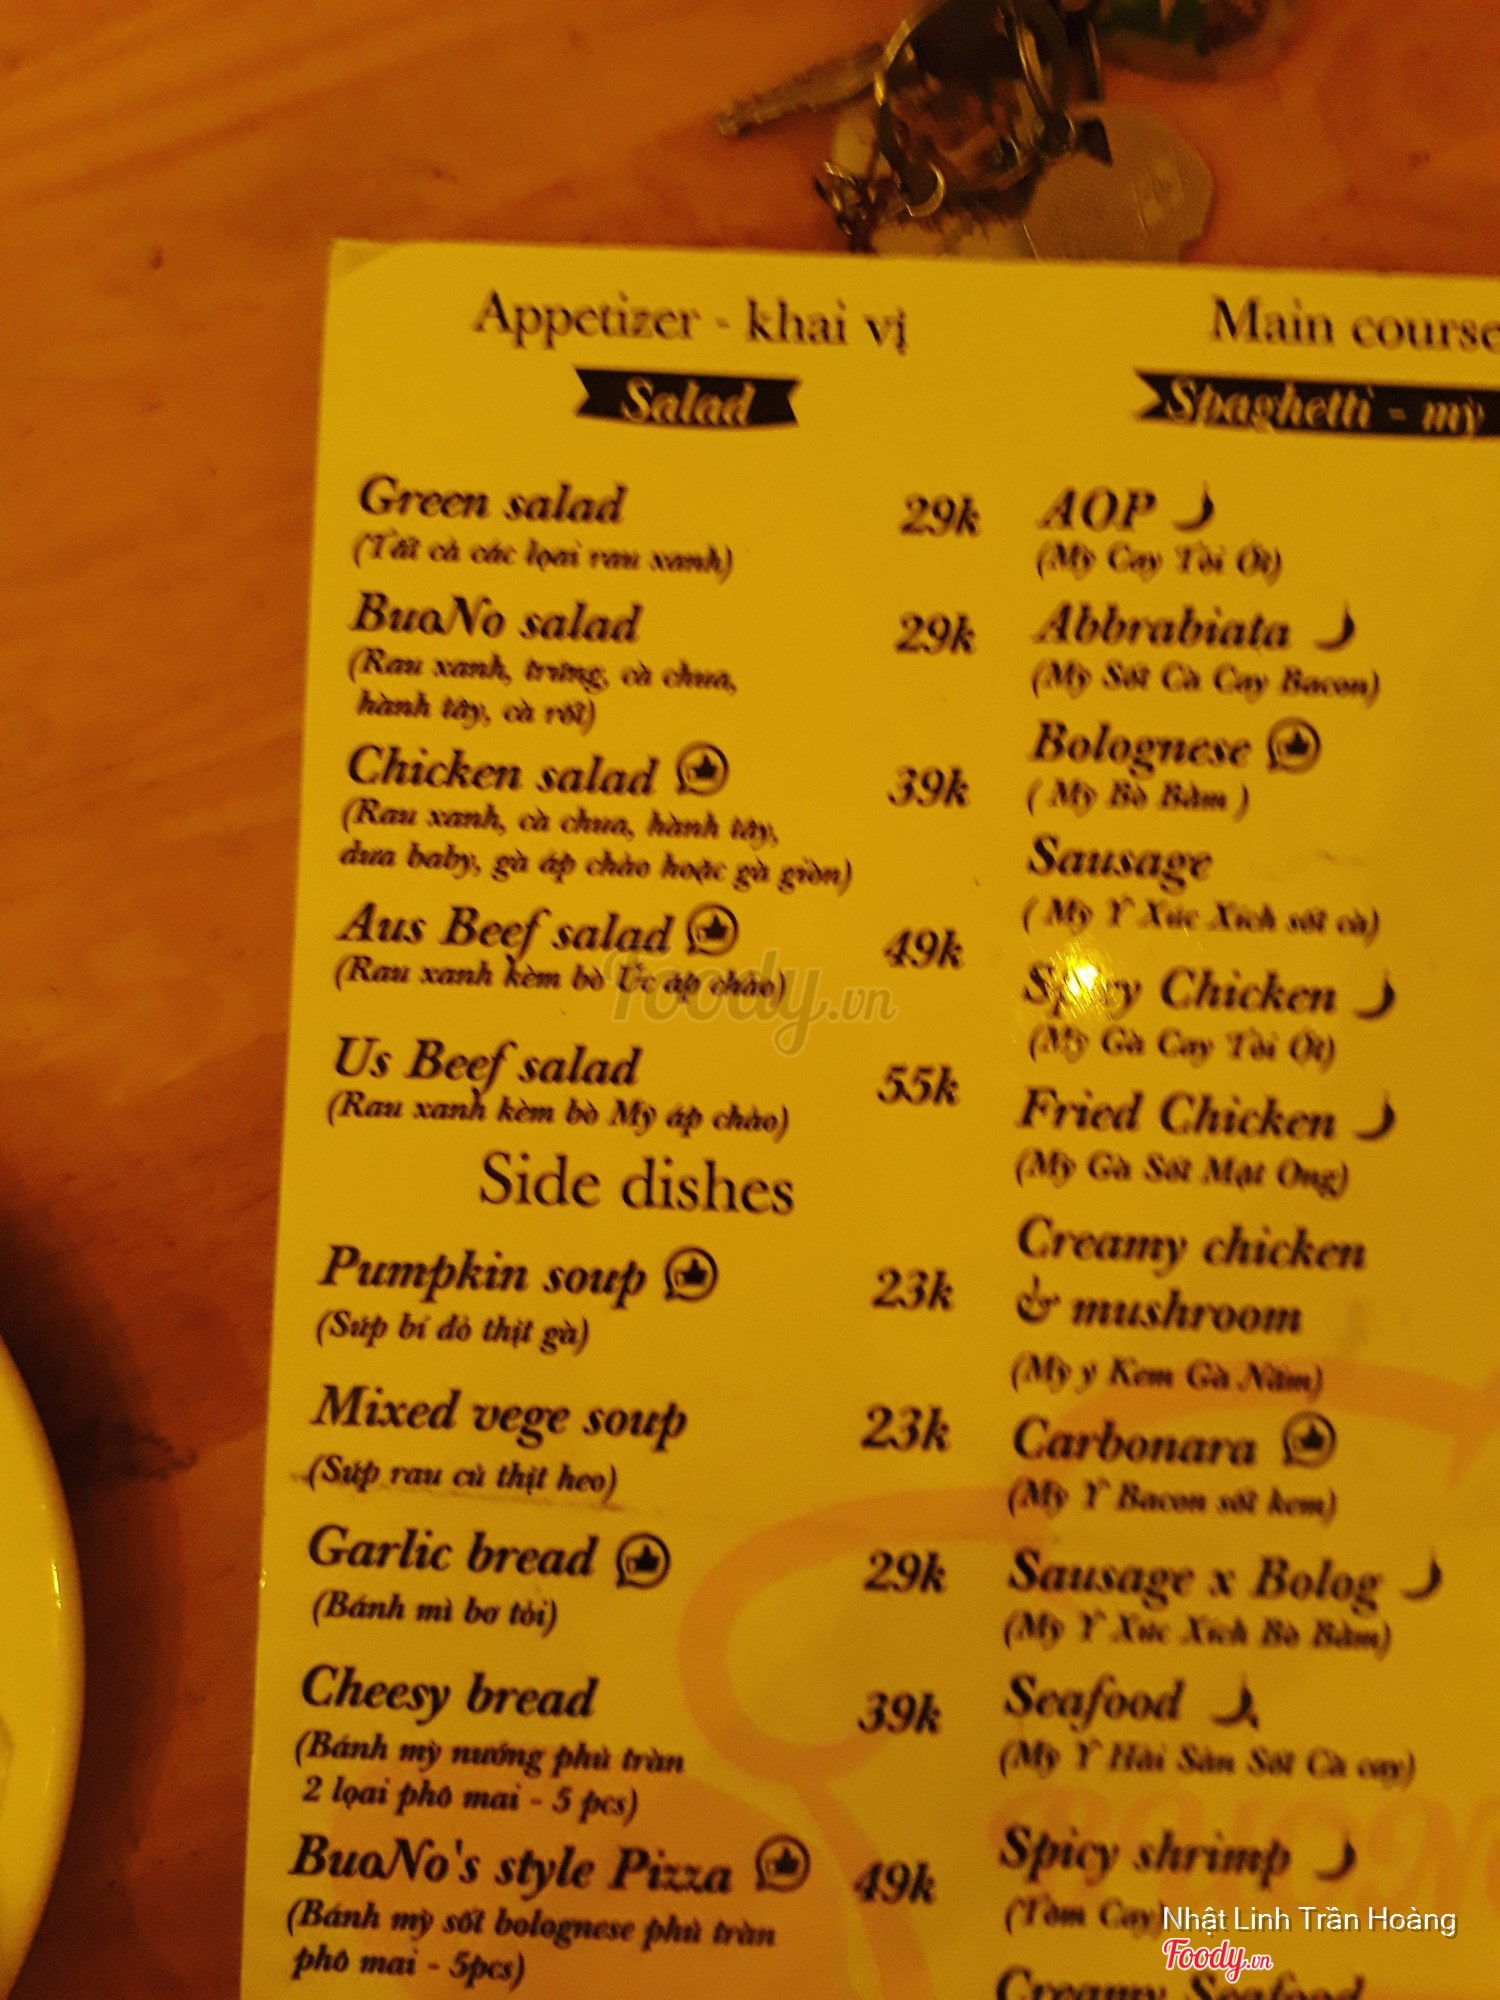 Appetizer - khai vị
Salad
Green salad 29k
(Tất cả các lọai rau xanh)
BuaNo salad 29k
(Rau xanh, trứng, cà chua,
hành tây, cà rốt)
Chicken salad 39k
(Rau xanh, cà chua, hành tây,
dưa baby, gà áp chảo hoặc gà giòn)
Aus Beef salad 49k
(Rau xanh kèm bò Úc áp chảo)
Us Beef salad 55k
(Rau xanh kèm bò Mỹ áp chảo)
Side dishes
Pumpkin soup 23k
(Súp bí đỏ thịt gà)
Mixed vege soup 23k
(Súp rau củ thịt heo)
Garlic bread 29k
(Bánh mì bơ tỏi)
Cheesy bread 39k
(Bánh mỳ nướng phủ tràn
2 lọai phô mai - 5 pcs)
BuaNo's style Pizza 49k
(Bánh mỳ sốt bolognese phủ tràn
phô mai - 5pcs)
Main course
Spaghetti - mỳ
AOP
(Mỳ Cay Tỏi Ớt)
Abbrabiata
(Mỳ Sốt Cà Cay Bacon)
Bolognese
( Mỳ Bò Bằm )
Sausage
( Mỳ Ý Xúc Xích sốt cà)
Spicy Chicken
(Mỳ Gà Cay Tỏi Ớt)
Fried Chicken
(Mỳ Gà Sốt Mật Ong)
Creamy chicken
& mushroom
(Mỳ ý Kem Gà Nấm)
Carbonara
(Mỳ Ý Bacon sốt kem)
Sausage x Bolog
(Mỳ Ý Xúc Xích Bò Bằm)
Seafood
(Mỳ Ý Hải Sản Sốt Cà cay)
Spicy shrimp
(Tôm Cay)
Creamy Seafood
Foody.vn
Nhật Linh Trần Hoàng
Foody.vn